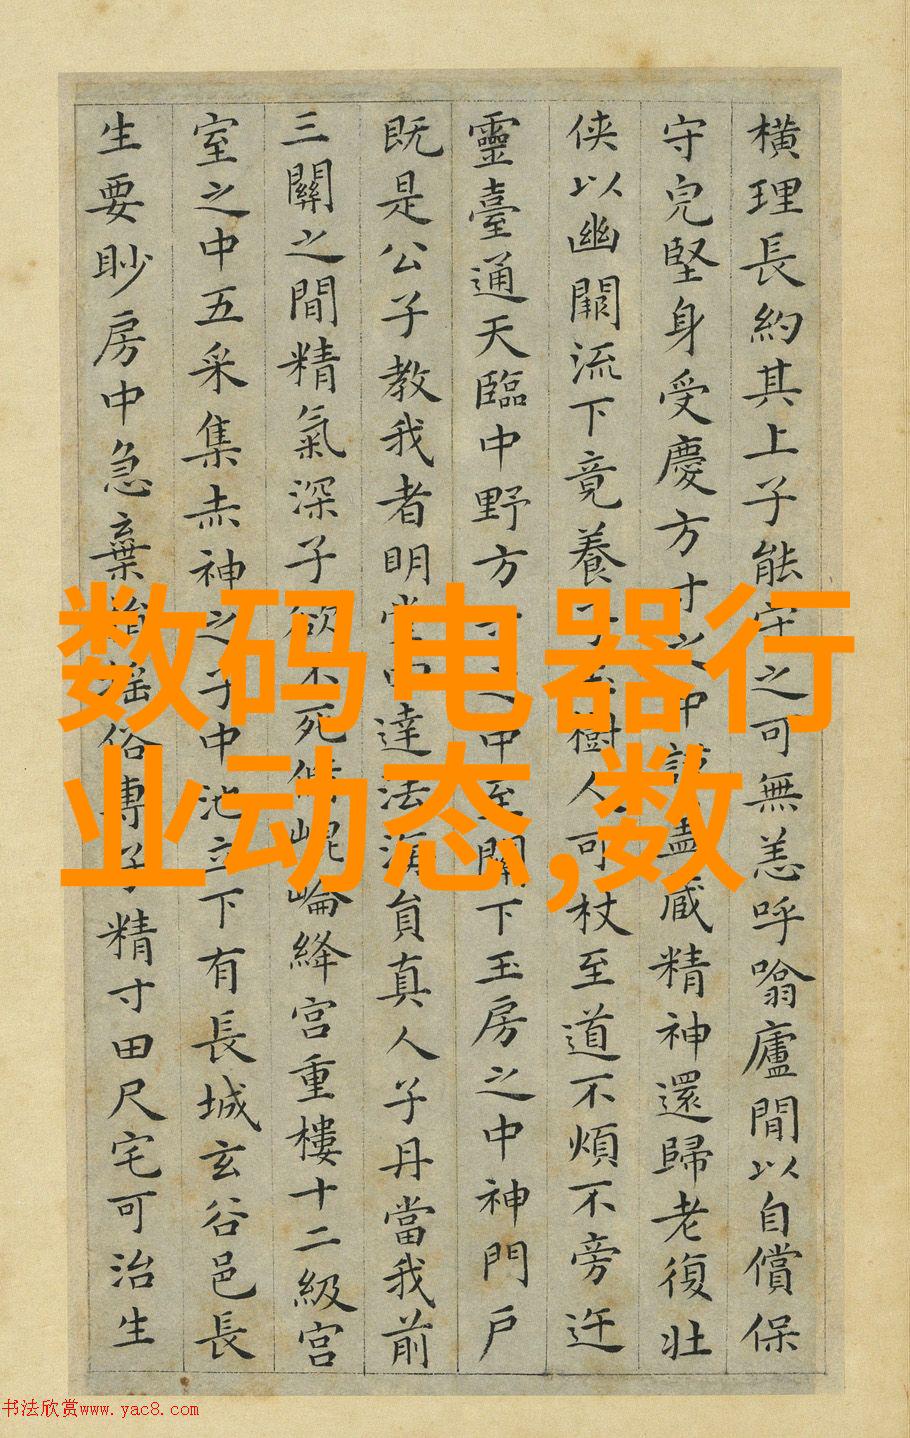 橫理長約其上子能守之可無恙呼噏廬間以自償保
守皃堅身受慶方寸之中謹蓋蔵精神還歸老復壯
侠以幽闕流下竟養樹人可杖至道不煩不旁迕
靈臺通天臨中野方之中至關下玉房之中神門戶
既是公子教我者明堂四達法海員真人子丹當我前
三關之間精氣深子欲不死脩崐崘絳宮重樓十二級宮
室之中五采集赤神之子中池立下有長城玄谷邑長
生要眇房中急棄俗專子精寸田尺宅可治生
数码电器行
业动态,数
书法欣赏www.yac8.com